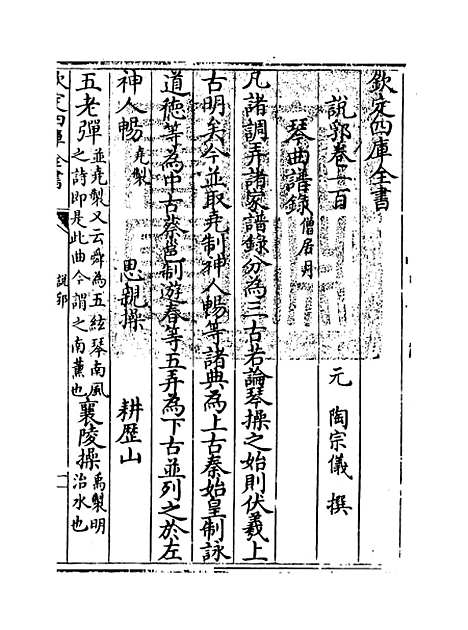 欽定四庫全書
說郛卷一百
元 陶宗儀 撰
琴曲譜錄 僧居月
凡諸調弄諸家譜錄分為三古若論琴操之始則伏羲上
古明矣今並取堯制神人暢等諸典為上古秦始皇制詠
道德等為中古蔡邕制遊春等五弄為下古並列之於左
神人暢 堯製 思親操 耕歷山
五老彈 並堯製又云舜為五絃琴南風之詩即是此曲今謂之南薰也 襄陵操 禹製明治水也
欽定四庫全書
說郛
一